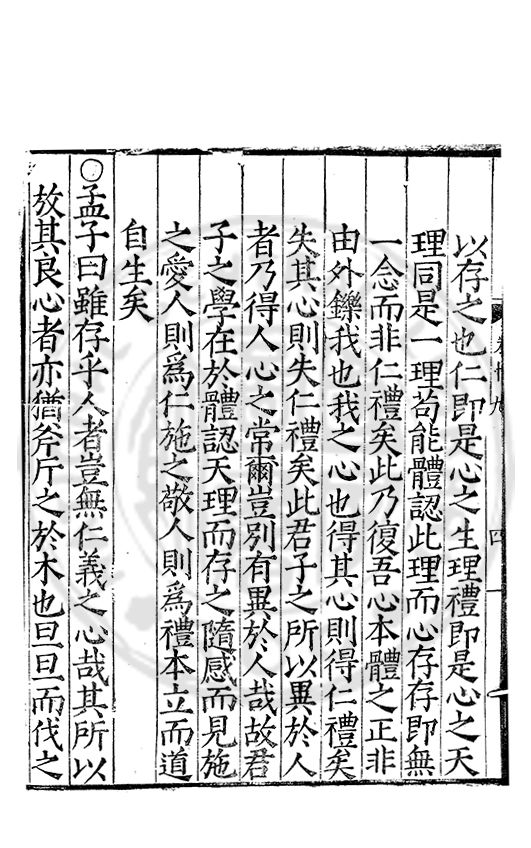 以存之也仁即是心之生理禮即是心之天
理同是一理苟能體認此理而心存存即無
一念而非仁禮矣此乃復吾心本體之正非
由外鑠我也我之心也得其心則得仁禮矣
失其心則失仁禮矣此君子之所以異於人
者乃得人心之常爾豈別有異於人哉故君
子之學在於體認天理而存之隨感而見施
之愛人則為仁施之敬人則為禮本立而道
自生矣
○孟子曰雖存乎人者豈無仁義之心哉其所以
放其良心者亦猶斧斤之於木也旦旦而伐之